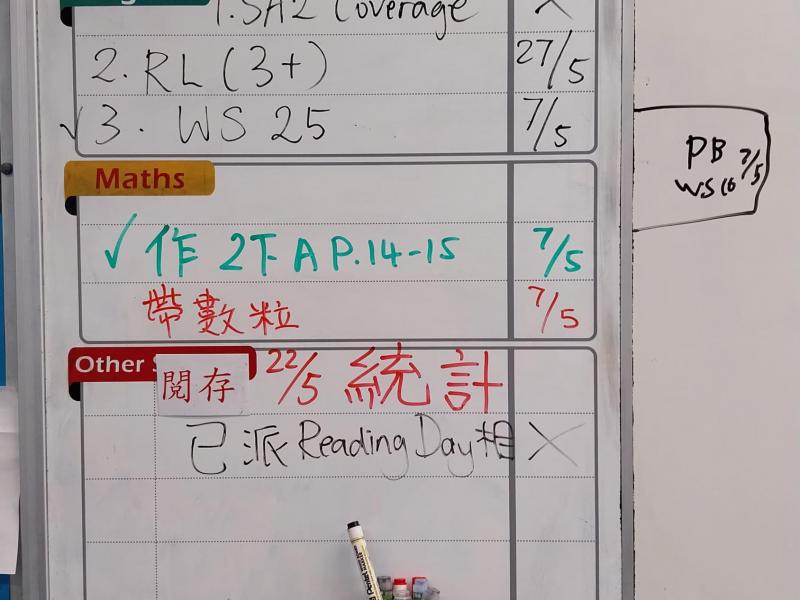 1. SA2 Coverage X
2. RL (3+) 27/5
✓ 3. WS 25 7/5
PB 7/5
WS 16
Maths
✓ 作 2下 A P.14-15 7/5
帶數粒 7/5
Other
閱存 22/5 統計
已派 Reading Day 相 X